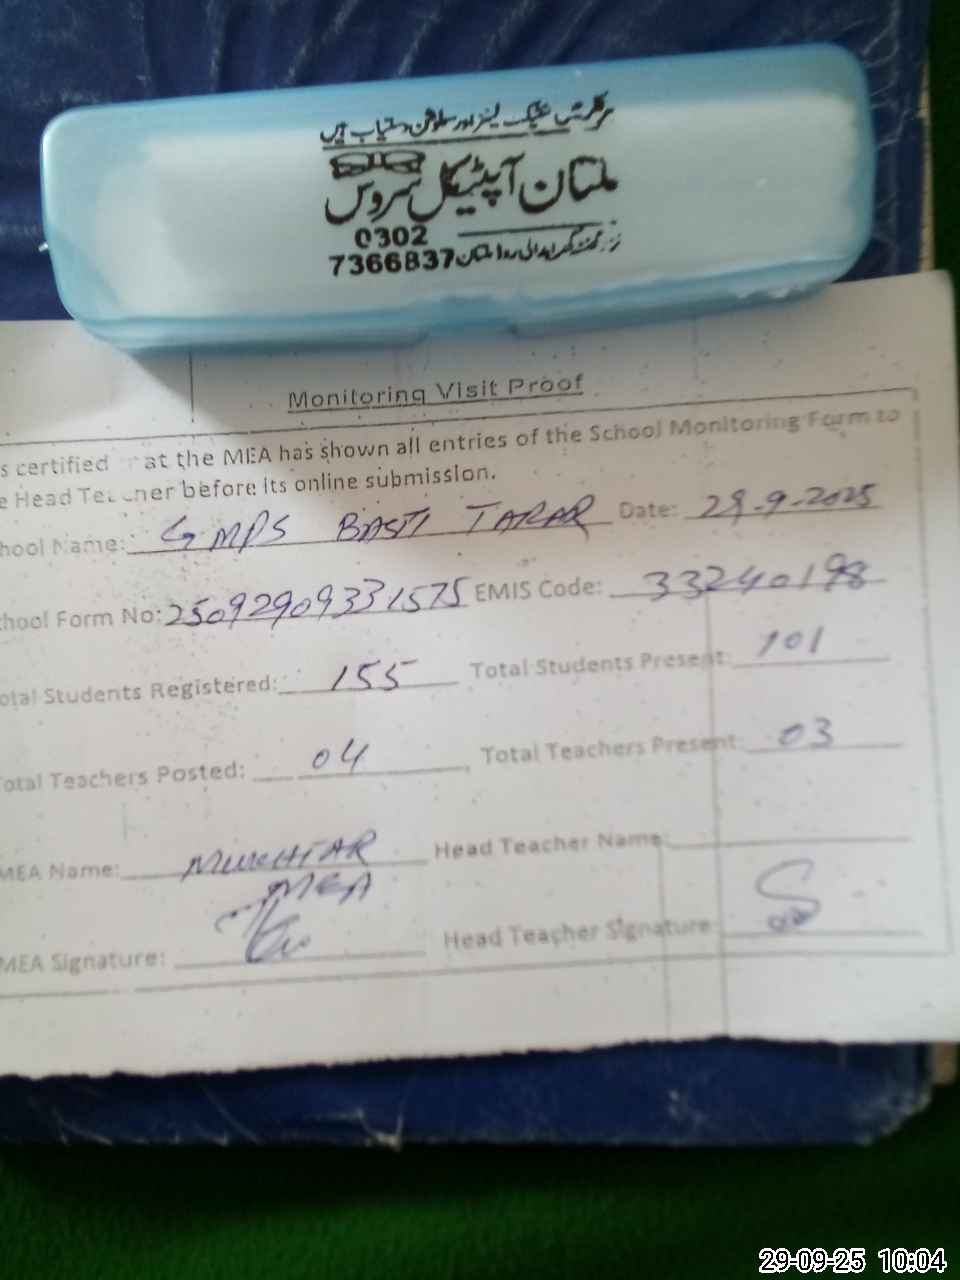 سرکلرنش عینک لینز اور سلوشن دستیاب ہیں
ملتان آپٹیکل سروس
0302
7366837
Monitoring Visit Proof
s certified at the MEA has shown all entries of the School Monitoring Form to
e Head Teacher before its online submission.
hool Name: GMPS BASTI TARAR Date: 29-9-2025
chool Form No: 25092909331575 EMIS Code: 33240198
otal Students Registered: 155 Total Students Present: 101
Total Teachers Posted: 04 Total Teachers Present: 03
MEA Name: MUKHTAR Head Teacher Name:
MEA
MEA Signature: Head Teacher Signature:
29-09-25 10:04